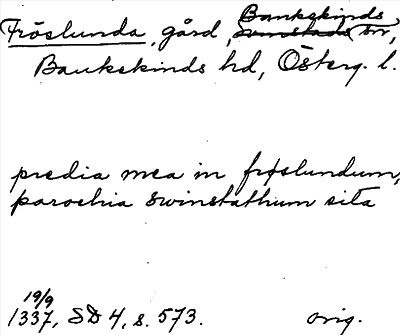 Bankekinds
Fröslunda, gård, Svinstads sn,
Bankekinds hd, Österg. l.
predia mea in frøslundum,
parochia swinstathum sita
19/9
1337, SD 4, s. 573. orig.